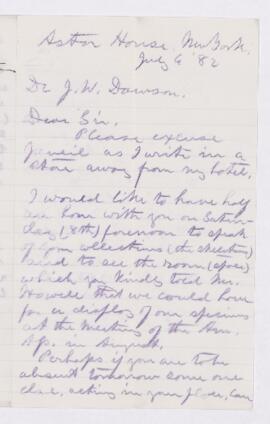 Astor House, New York.
July 6 '82
Dr J. W. Dawson.
Dear Sir.
Please excuse
pencil as I write in a
store away from my hotel.
I would like to have half
an hour with you on Satur-
day (8th) forenoon to speak
of your collections (the skeletons)
and to see the room (space)
which you kindly told Mr.
Howell that we could have
for a display of our specimens
at the meeting of the Am.
Ap. in August.
Perhaps if you are to be
absent tomorrow some one
else, acting in your place, can